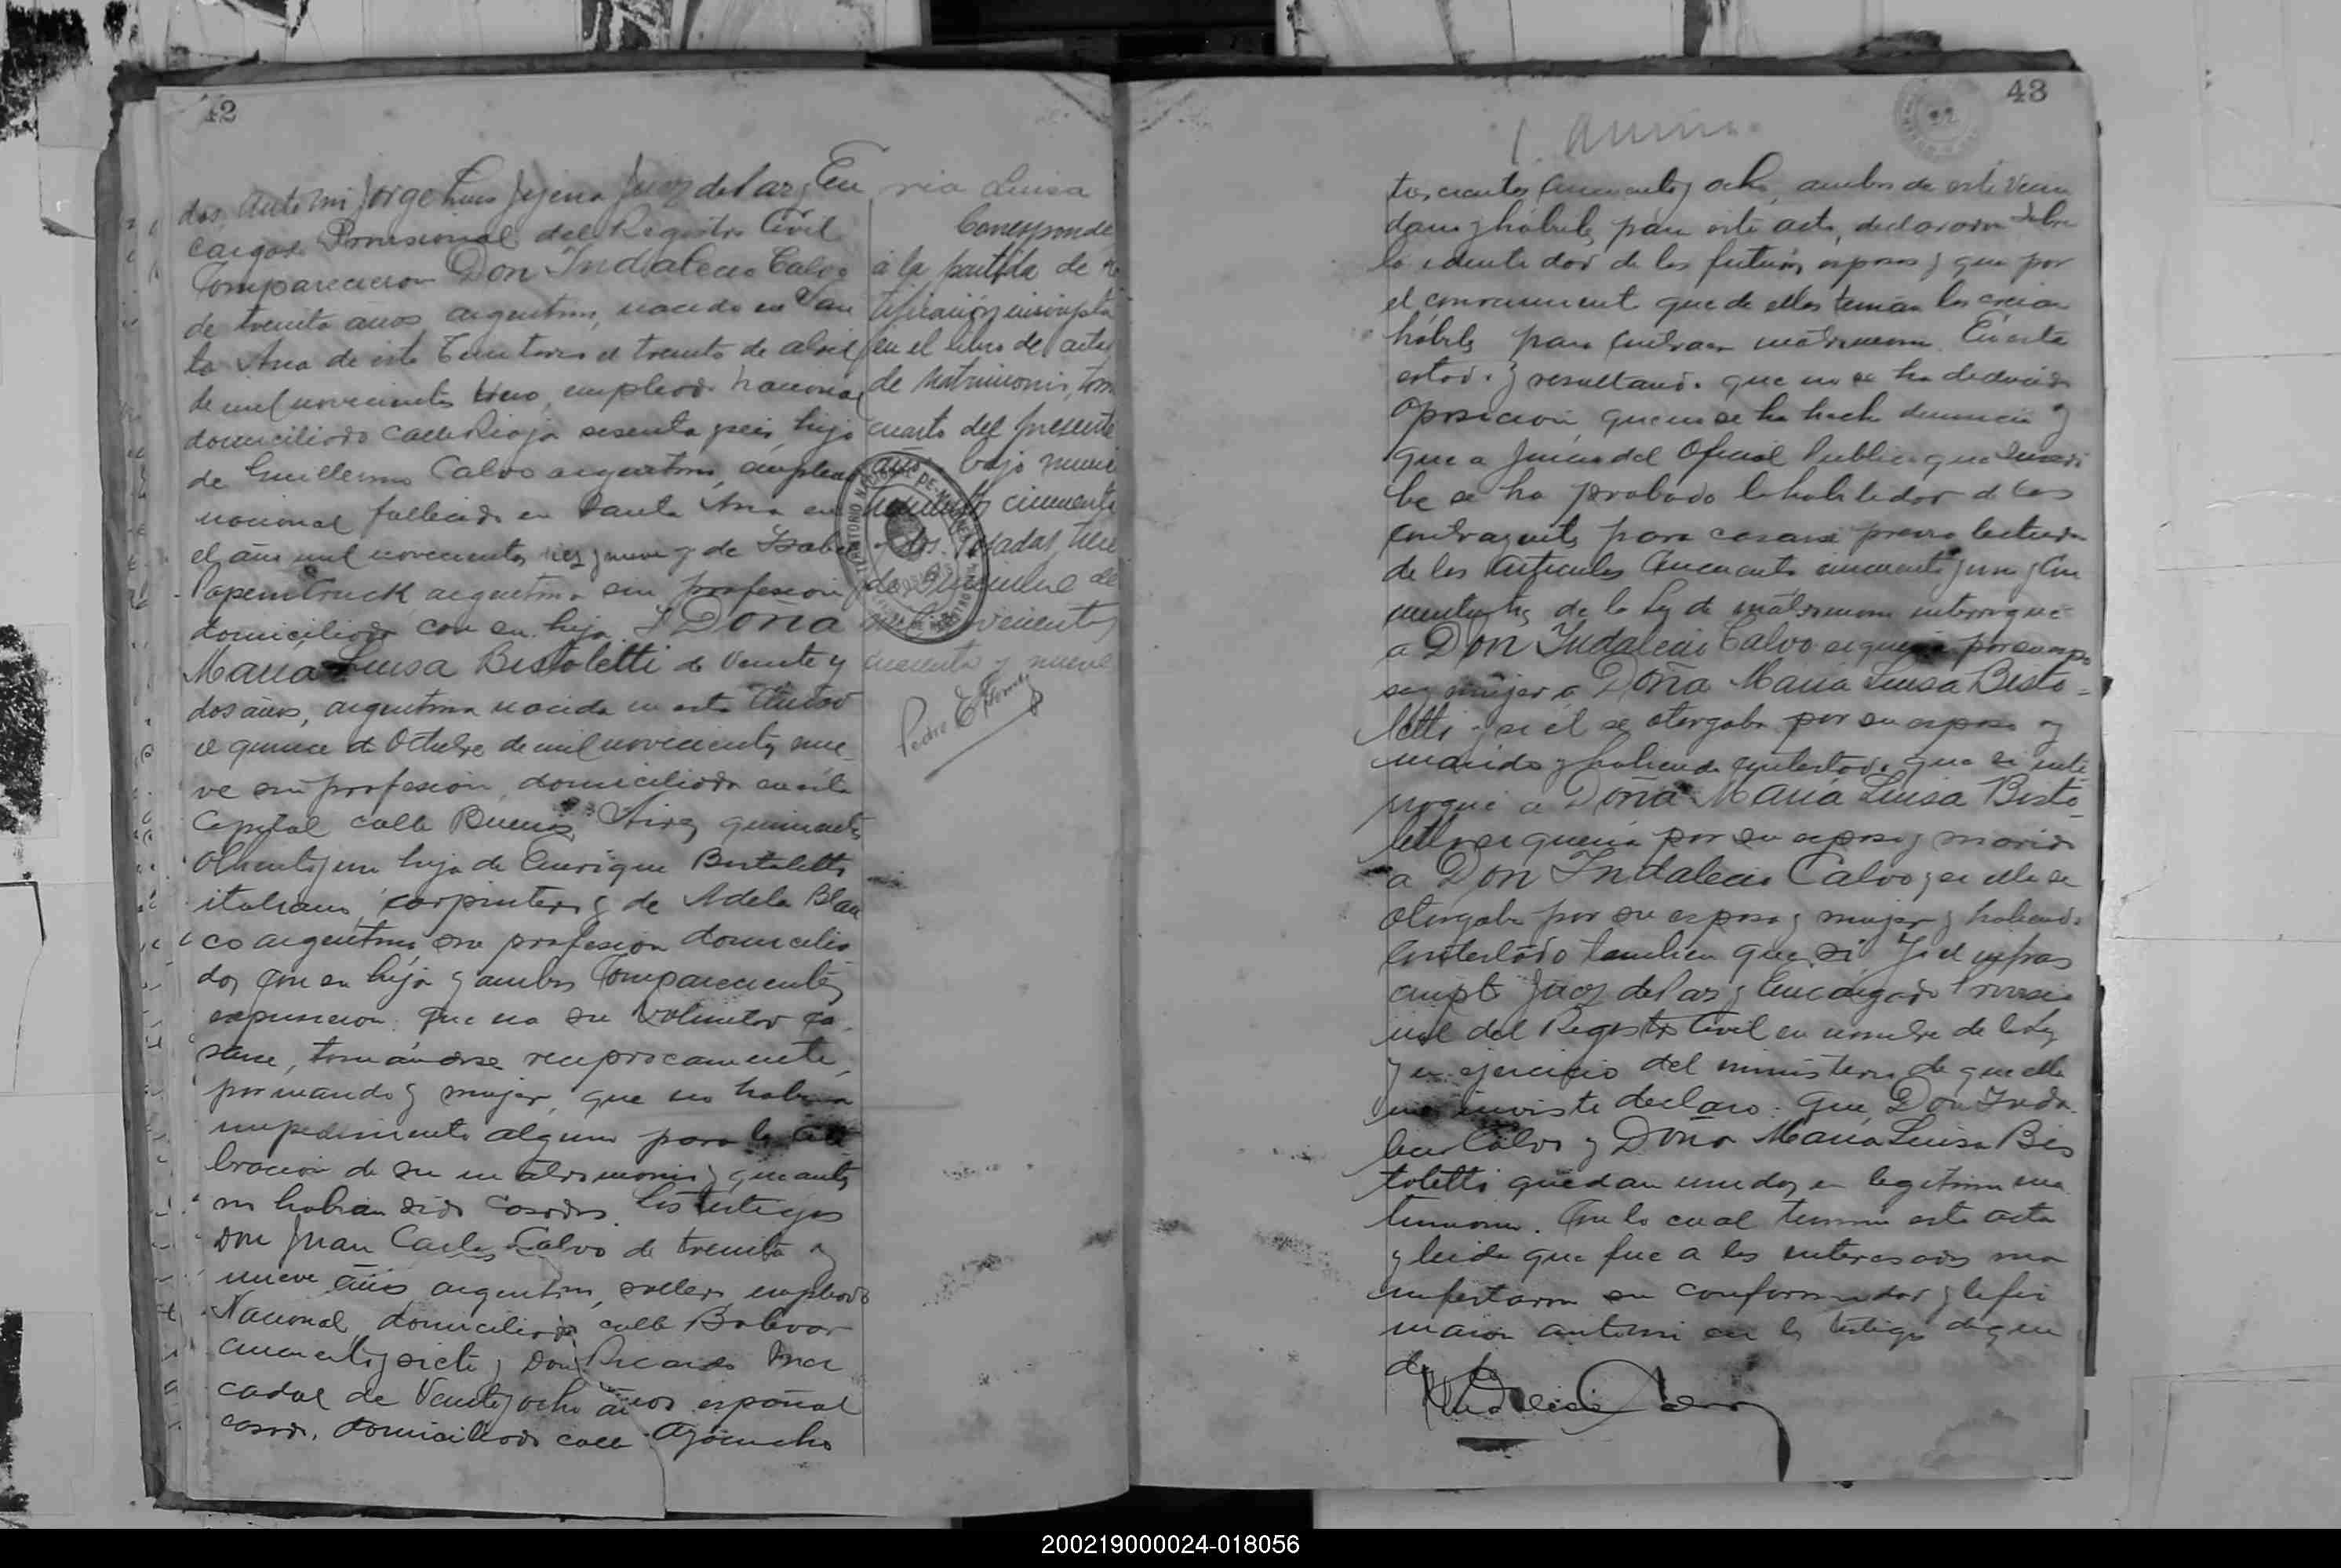 42
dos, ante mi Jorge Luis Jejena Juez de Paz y En
cargado Provisional del Registro Civil
Comparecieron Don Indalecio Calvo
de treinta años, argentino, nacido en San
ta Ana de este Territorio el treinta de abril
de mil novecientos uno, empleado nacional
domiciliado calle Rioja sesenta y seis, hijo
de Guillermo Calvo argentino, empleado
nacional fallecido en Santa Ana en
el año mil novecientos diez y nueve y de Isabel
Papemtruck argentina sin profesion
domiciliada con su hijo. Y Doña
Maria Luisa Bistoletti de veinte y
dos años, argentina nacida en esta Ciudad
el quince de Octubre de mil novecientos nue
ve sin profesion, domiciliada en esta
Capital calle Buenos Aires quinientos
ochenta y uno hija de Enrique Bistoletti
italiano, carpintero y de Adela Blan
co argentina sin profesion domicilia
dos con su hija y ambos Comparecientes
expusieron: Que era su voluntad ca
sarse, tomándose reciprocamente,
por marido y mujer, que no habia
impedimento alguno para la cele
bracion de su matrimonio y que antes
no habian sido casados. Los testigos
Don Juan Carlos Calvo de treinta y
nueve años argentino, soltero, empleado
Nacional domiciliado calle Bolivar
cuarenta y siete y Don Ricardo
cadal de veinte y ocho años español
casado, domiciliado calle Ayacucho
ria Luisa
Corresponde
á la partida de
inscripta
en el libro de actas
de Matrimonio, tomo
cuarto del presente
año bajo
cincuenta
y dos. Posadas, trece
de Diciembre de
mil novecientos
cuarenta y nueve
Pedro E.
43
trescientos cincuenta y ocho, ambos de este vecin
dario y hábiles para este acto, declararon sobre
la identidad de los futuros esposos y que por
el conocimiento que de ellos tenian los creian
hábiles para contraer matrimonio. En este
estado y resultando que no se ha deducido
oposicion, que no se ha hecho denuncia y
que a juicio del Oficial Publico que suscri
be se ha probado la habilidad de los
contrayentes para casarse previa lectura
de los Articulos cincuenta cincuenta y uno y cin
cuenta y tres de la Ley de matrimonio interrogué
a Don Indalecio Calvo si queria por su espo
sa y mujer a Doña Maria Luisa Bisto=
letti y si él se otorgaba por su esposo y
marido y habiendo contestado que si inte
rrogué a Doña Maria Luisa Bisto
letti si queria por su esposo y marido
a Don Indalecio Calvo y si ella se
otorgaba por su esposa y mujer y habiendo
contestado tambien que si. Yo el infras
cripto Juez de Paz y Encargado Provisio
nal del Registro Civil en nombre de la Ley
y en ejercicio del ministerio de que ella
me inviste declaro: Que Don Inda
lecio Calvo y Doña Maria Luisa Bis
toletti quedan unidos en legitimo ma
trimonio. Con lo cual termino esta acta
y leida que fue a los interesados ma
nifestaron su conformidad y la fir
maron ante mi con los testigos de que
doy fe
Indalecio Calvo
200219000024-018056